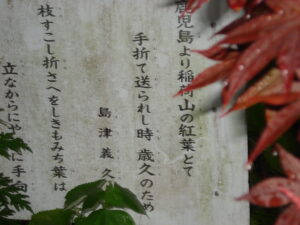 鹿児島より稲荷山の紅葉とて
手折て送られし時 歳久のため
島津義久
枝すこし折さへをしきもみち葉は
立なからにや に手向